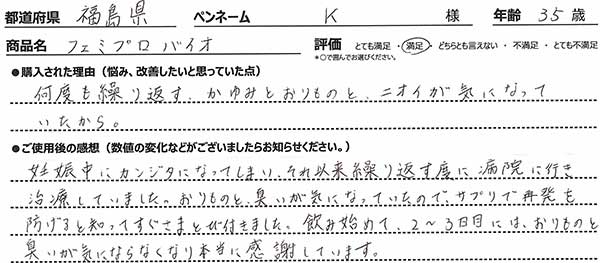 都道府県 福島県 ペンネーム K 様 年齢 35 歳
商品名 フェミプロバイオ 評価 とても満足・満足・どちらとも言えない・不満足・とても不満足
*○で囲んでお選びください。
●購入された理由（悩み、改善したいと思っていた点）
何度も繰り返す、かゆみとおりものと、ニオイが気になって
いたから。
●ご使用後の感想（数値の変化などがございましたらお知らせください。）
妊娠中にカンジダになってしまい、それ以来繰り返す度に病院に行き
治療していました。おりものと、臭いが気になっていたのでサプリで再発を
防げると知ってすぐさまとび付きました。飲み始めて、2～3日目には、おりものと
臭いが気にならなくなり本当に感謝しています。